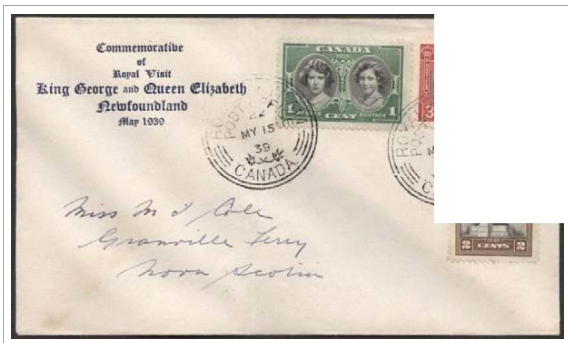 Commemorative
of
Royal Visit
King George and Queen Elizabeth
Newfoundland
May 1939
CANADA
1 CENT POSTAGE 1
3
MY 15
39
CANADA
Miss M
Cole
Granville Ferry
Nova Scotia
2 CENTS 2